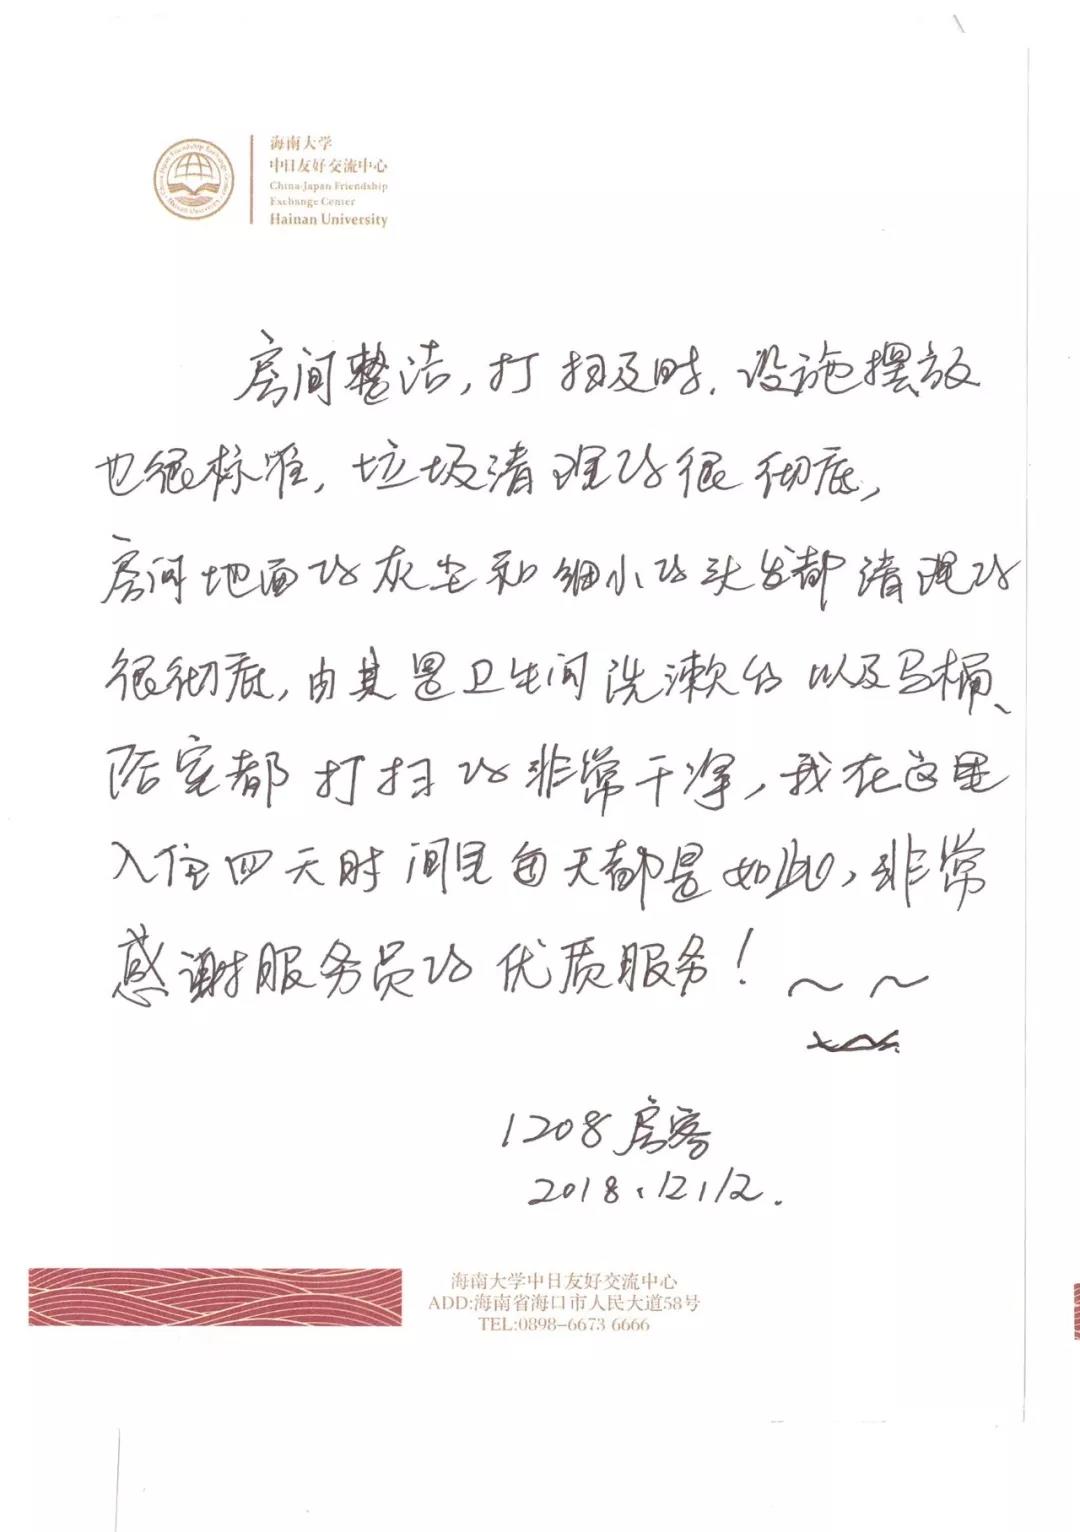 海南大学
中日友好交流中心
China-Japan Friendship
Exchange Center
Hainan University
China-Japan Friendship Exchange Center
Hainan University
房间整洁,打扫及时.设施摆放
也很标准,垃圾清理的很彻底,
房间地面的灰尘和细小的头发都清理的
很彻底,由其是卫生间洗漱台以及马桶、
浴室都打扫的非常干净,我在这里
入住四天时间里每天都是如此,非常
感谢服务员的优质服务!~~
1208房客
2018.12.12.
海南大学中日友好交流中心
ADD:海南省海口市人民大道58号
TEL:0898-6673 6666